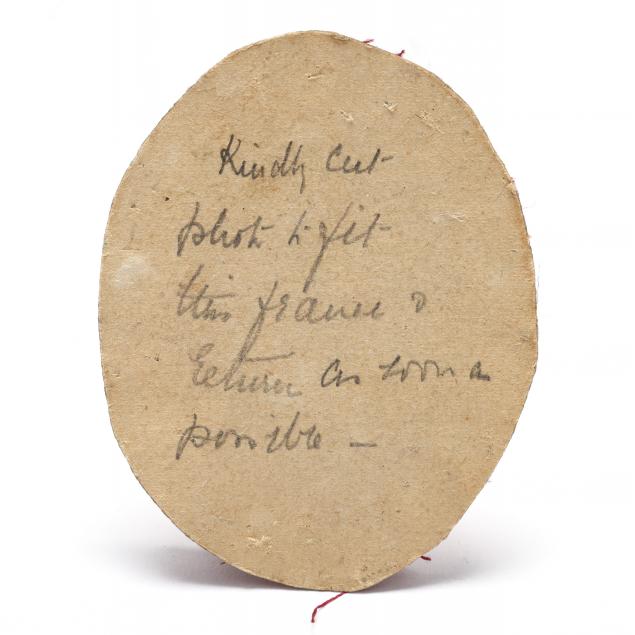 Kindly Cut
photo to fit
this frame &
return as soon as
possible —